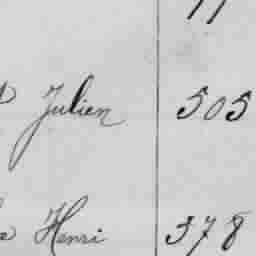 Julien 505
Henri 378